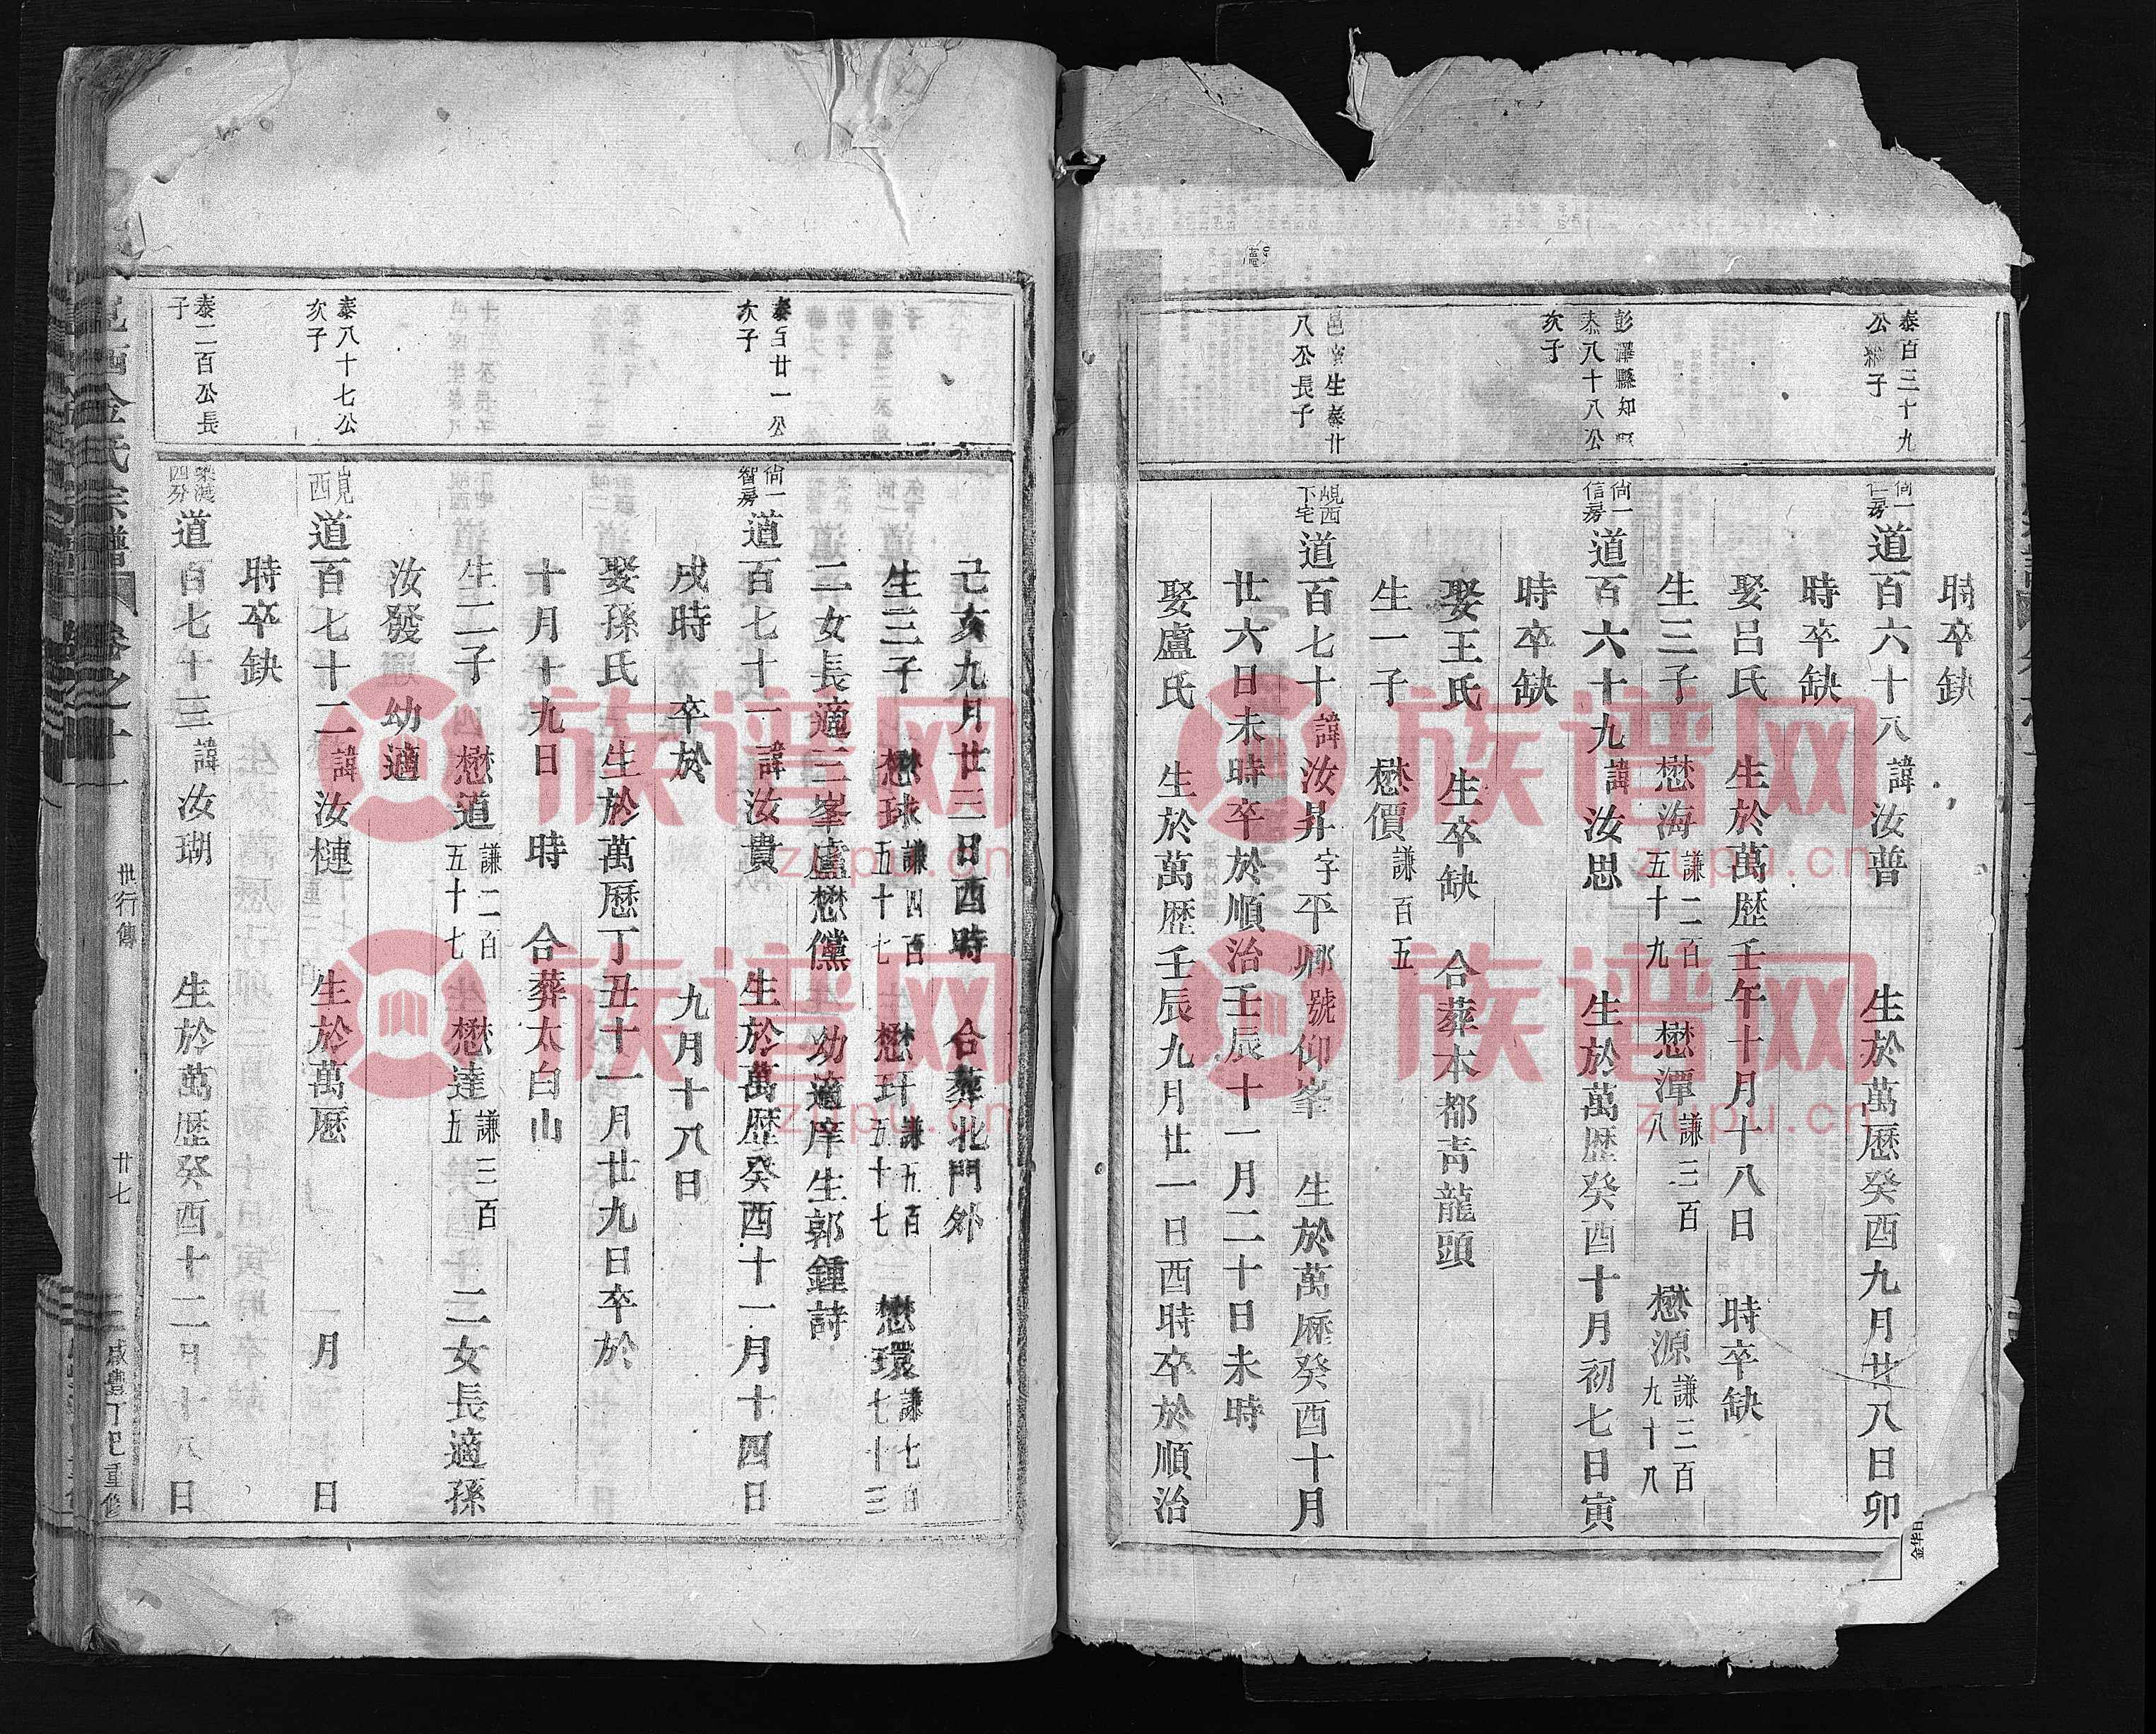 時卒缺
泰百三十九
公子
尙一
仁房
道百六十八諱汝普 生於萬歷癸酉九月廿八日卯
時卒缺
娶呂氏 生於萬歷壬午十月十八日 時卒缺
生三子 懋海謙二百五十九 懋潭謙三百八 懋源謙三百九十八
彭澤縣知縣
泰八十八公
次子
尙一
信房
道百六十九諱汝思 生於萬歷癸酉十月初七日寅
時卒缺
娶王氏 生卒缺 合葬本都靑龍頭
生一子 懋價謙百五
邑賓生泰廿
八公長子
峴西
下宅
道百七十諱汝昇字平鄉號仰峯 生於萬歷癸酉十月
廿六日未時卒於順治壬辰十一月二十日未時
娶盧氏 生於萬歷壬辰九月廿一日酉時卒於順治
己亥九月廿三日酉時 合葬北門外
生三子 懋球謙四百五十七 懋玕謙五百五十七 懋環謙七百七十三
二女長適三峯盧懋儻 幼適庠生郭鍾詩
泰百廿一公
次子
尙一
智房
道百七十一諱汝貴 生於萬歷癸酉十一月十四日
戌時 卒於 九月十八日
娶孫氏 生於萬歷丁丑十一月廿九日卒於
十月十九日 時 合葬太白山
生二子 懋道謙二百五十七 懋達謙三百五 二女長適孫
汝發 幼適
泰八十七公
次子
峴西
道百七十二諱汝槤 生於萬歷 月 日
時卒缺
泰二百公長
子
四分
道百七十三諱汝瑚 生於萬歷癸酉十二月十八日
邑西金氏宗譜 卷之十一
世行傳
廿七
咸豐丁巳重修
族谱网
zupu.cn
族谱网
zupu.cn
族谱网
zupu.cn
族谱网
zupu.cn